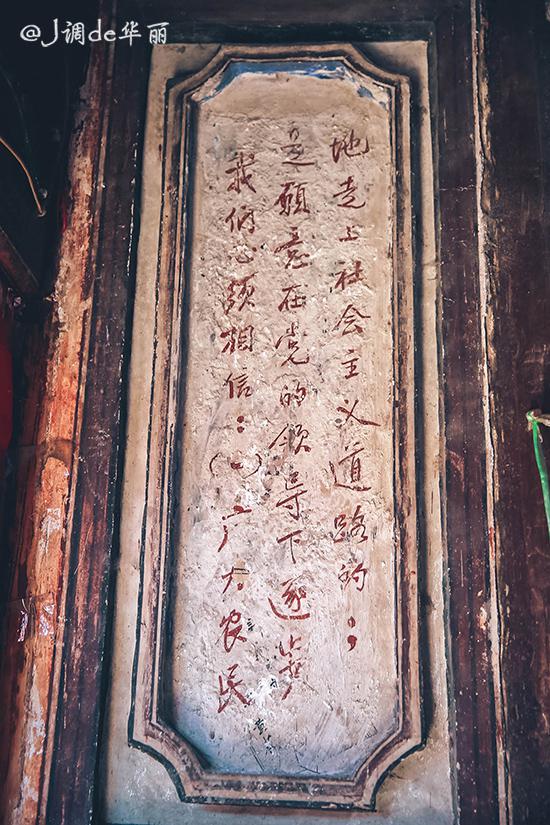 @J调de华丽
我们必须相信：（一）广大农民
是愿意在党的领导下逐步
地走上社会主义道路的；